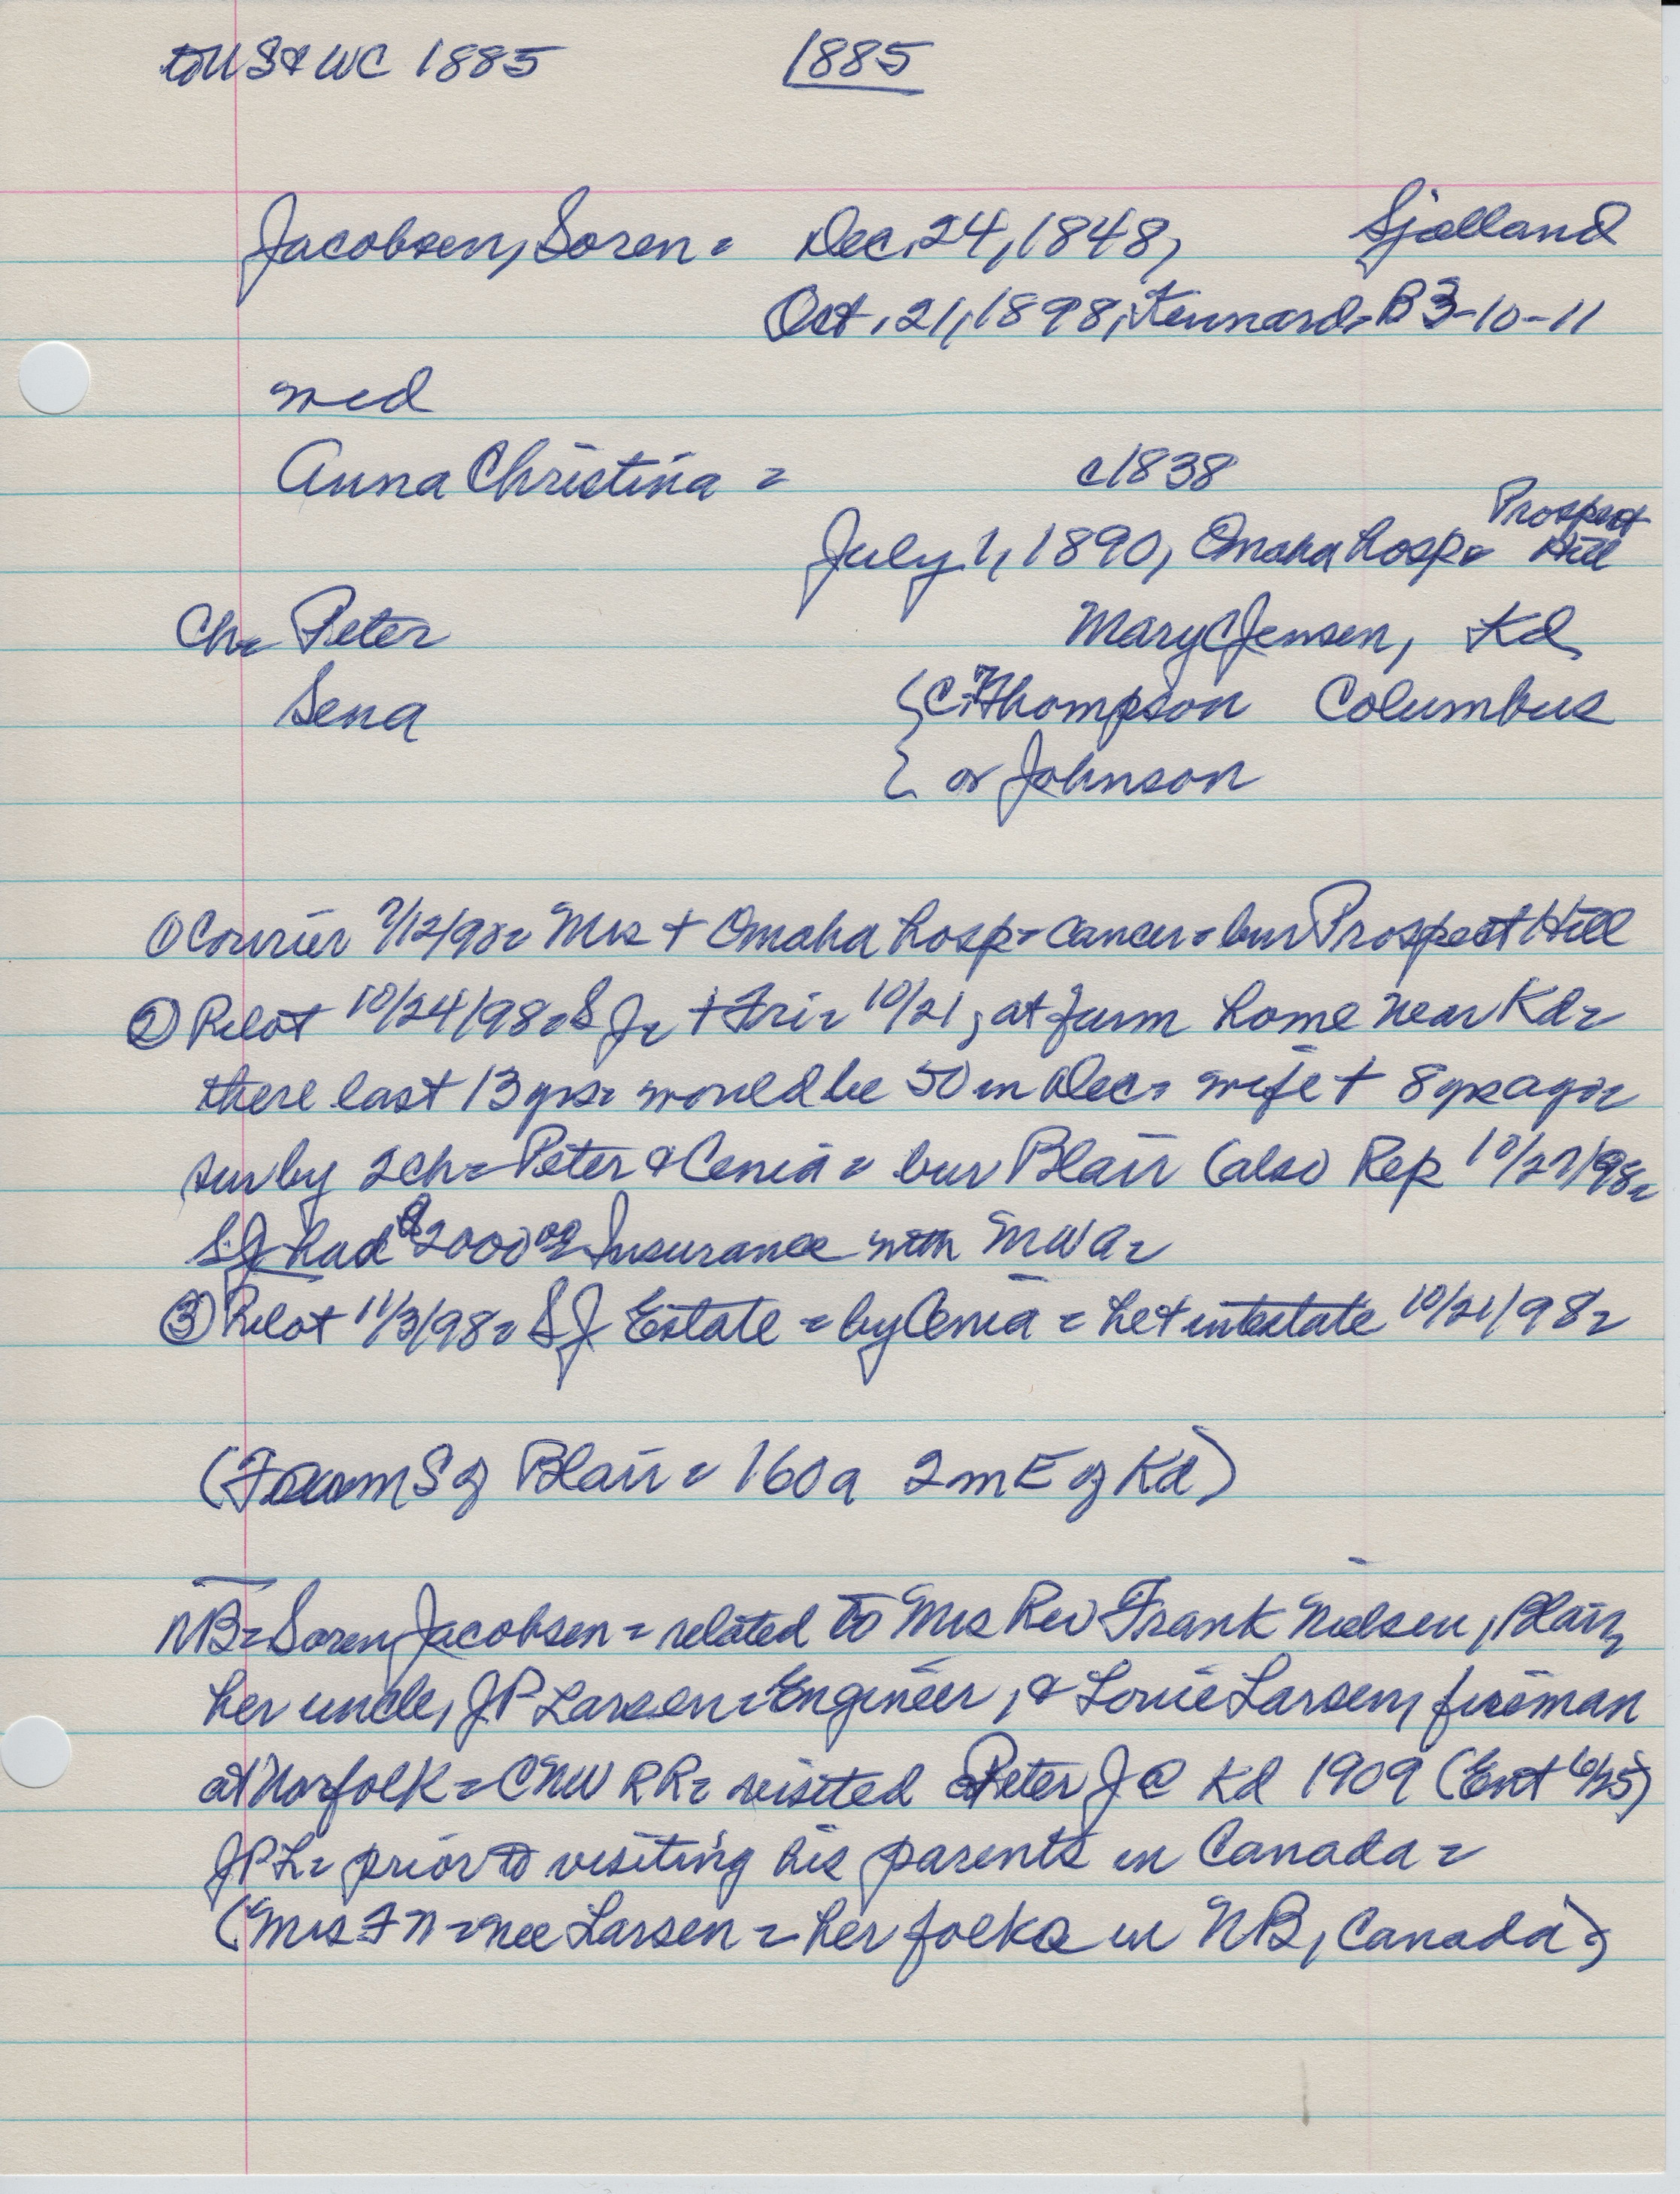 to US & WC 1885 1885
Jacobsen, Soren = Dec. 24, 1848, Sjalland
Oct. 21, 1898, Kennard, B 3-10-11
med
Anna Christina = c1838
July 1, 1890, Omaha hosp = Prospect Hill
Ch = Peter Mary C Jensen, Kd
Sena { C. Thompson Columbus
{ or Johnson
① Courier 7/12/90 = Mrs + Omaha hosp = cancer = bur Prospect Hill
② Pilot 10/24/98 = S J = + Fri = 10/21, at farm home near Kd =
there last 13 yrs = would be 50 in Dec = wife + 8 yrs ago =
sur by 2 ch = Peter & Cenia = bur Blair (also Rep 10/27/98 =
SJ had $2000 00 Insurance with MWA =
③ Pilot 11/3/98 = SJ Estate = by Cenia = he + intestate 10/21/98 =
(Farm S of Blair = 160 a 2 m E of Kd)
NB = Soren Jacobsen = related to Mrs Rev Frank Nielsen, Blair,
her uncle, JP Larsen = Engineer, & Louie Larsen, fireman
at Norfolk = CNW RR = visited Peter J @ Kd 1909 (Ent 6/25)
JPL = prior to visiting his parents in Canada =
(Mrs FN = nee Larsen = her folks in NB, Canada)